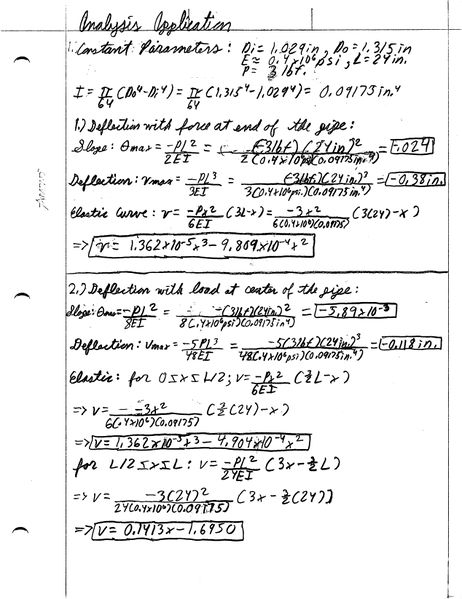 Analysis Application
1. Constant Parameters: Di = 1.029in, Do = 1.315in
E ≈ 0.4x10⁶psi, L = 24in.
P = 3 lbf.
I = π/64 (Do⁴-Di⁴) = π/64 (1.315⁴-1.029⁴) = 0.09175in.⁴
1.) Deflection with force at end of the pipe:
Slope: θmax = -PL²/2EI = -(3lbf)(24in.)²/2(0.4x10⁶psi)(0.09175in.⁴) = -.024
Deflection: vmax = -PL³/3EI = -(3lbf)(24in.)³/3(0.4x10⁶psi)(0.09175in.⁴) = -0.38in.
Elastic Curve: v = -Px²/6EI (3L-x) = -3x²/6(0.4x10⁶)(0.09175) (3(24)-x)
=> v = 1.362x10⁻⁵x³ - 9.809x10⁻⁴x²
2.) Deflection with load at center of the pipe:
Slope: θmax = -PL²/8EI = -(3lbf)(24in)²/8(.4x10⁶psi)(0.09175in⁴) = -5.89x10⁻³
Deflection: vmax = -5PL³/48EI = -5(3lbf)(24in)³/48(.4x10⁶psi)(0.09175in.⁴) = -0.118in.
Elastic: for 0≤x≤L/2; v = -Px²/6EI (3/2L-x)
=> v = -3x²/6(0.4x10⁶)(0.09175) (3/2(24)-x)
=> v = 1.362x10⁻⁵x³ - 4.904x10⁻⁴x²
for L/2≤x≤L: v = -PL²/24EI (3x-1/2L)
=> v = -3(24)²/24(0.4x10⁶)(0.09175) (3x-1/2(24))
=> v = 0.1413x-1.6950